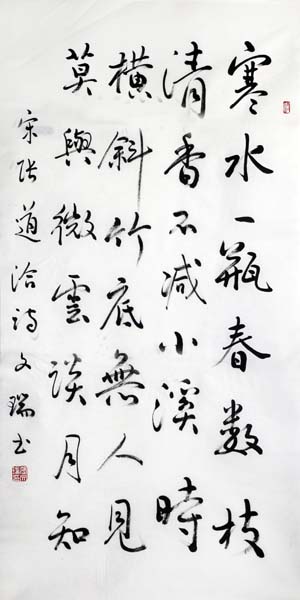 寒水一瓶春数枝
清香不减小溪時
横斜竹底無人見
莫與微雲淡月知
宋张道洽诗文瑞书